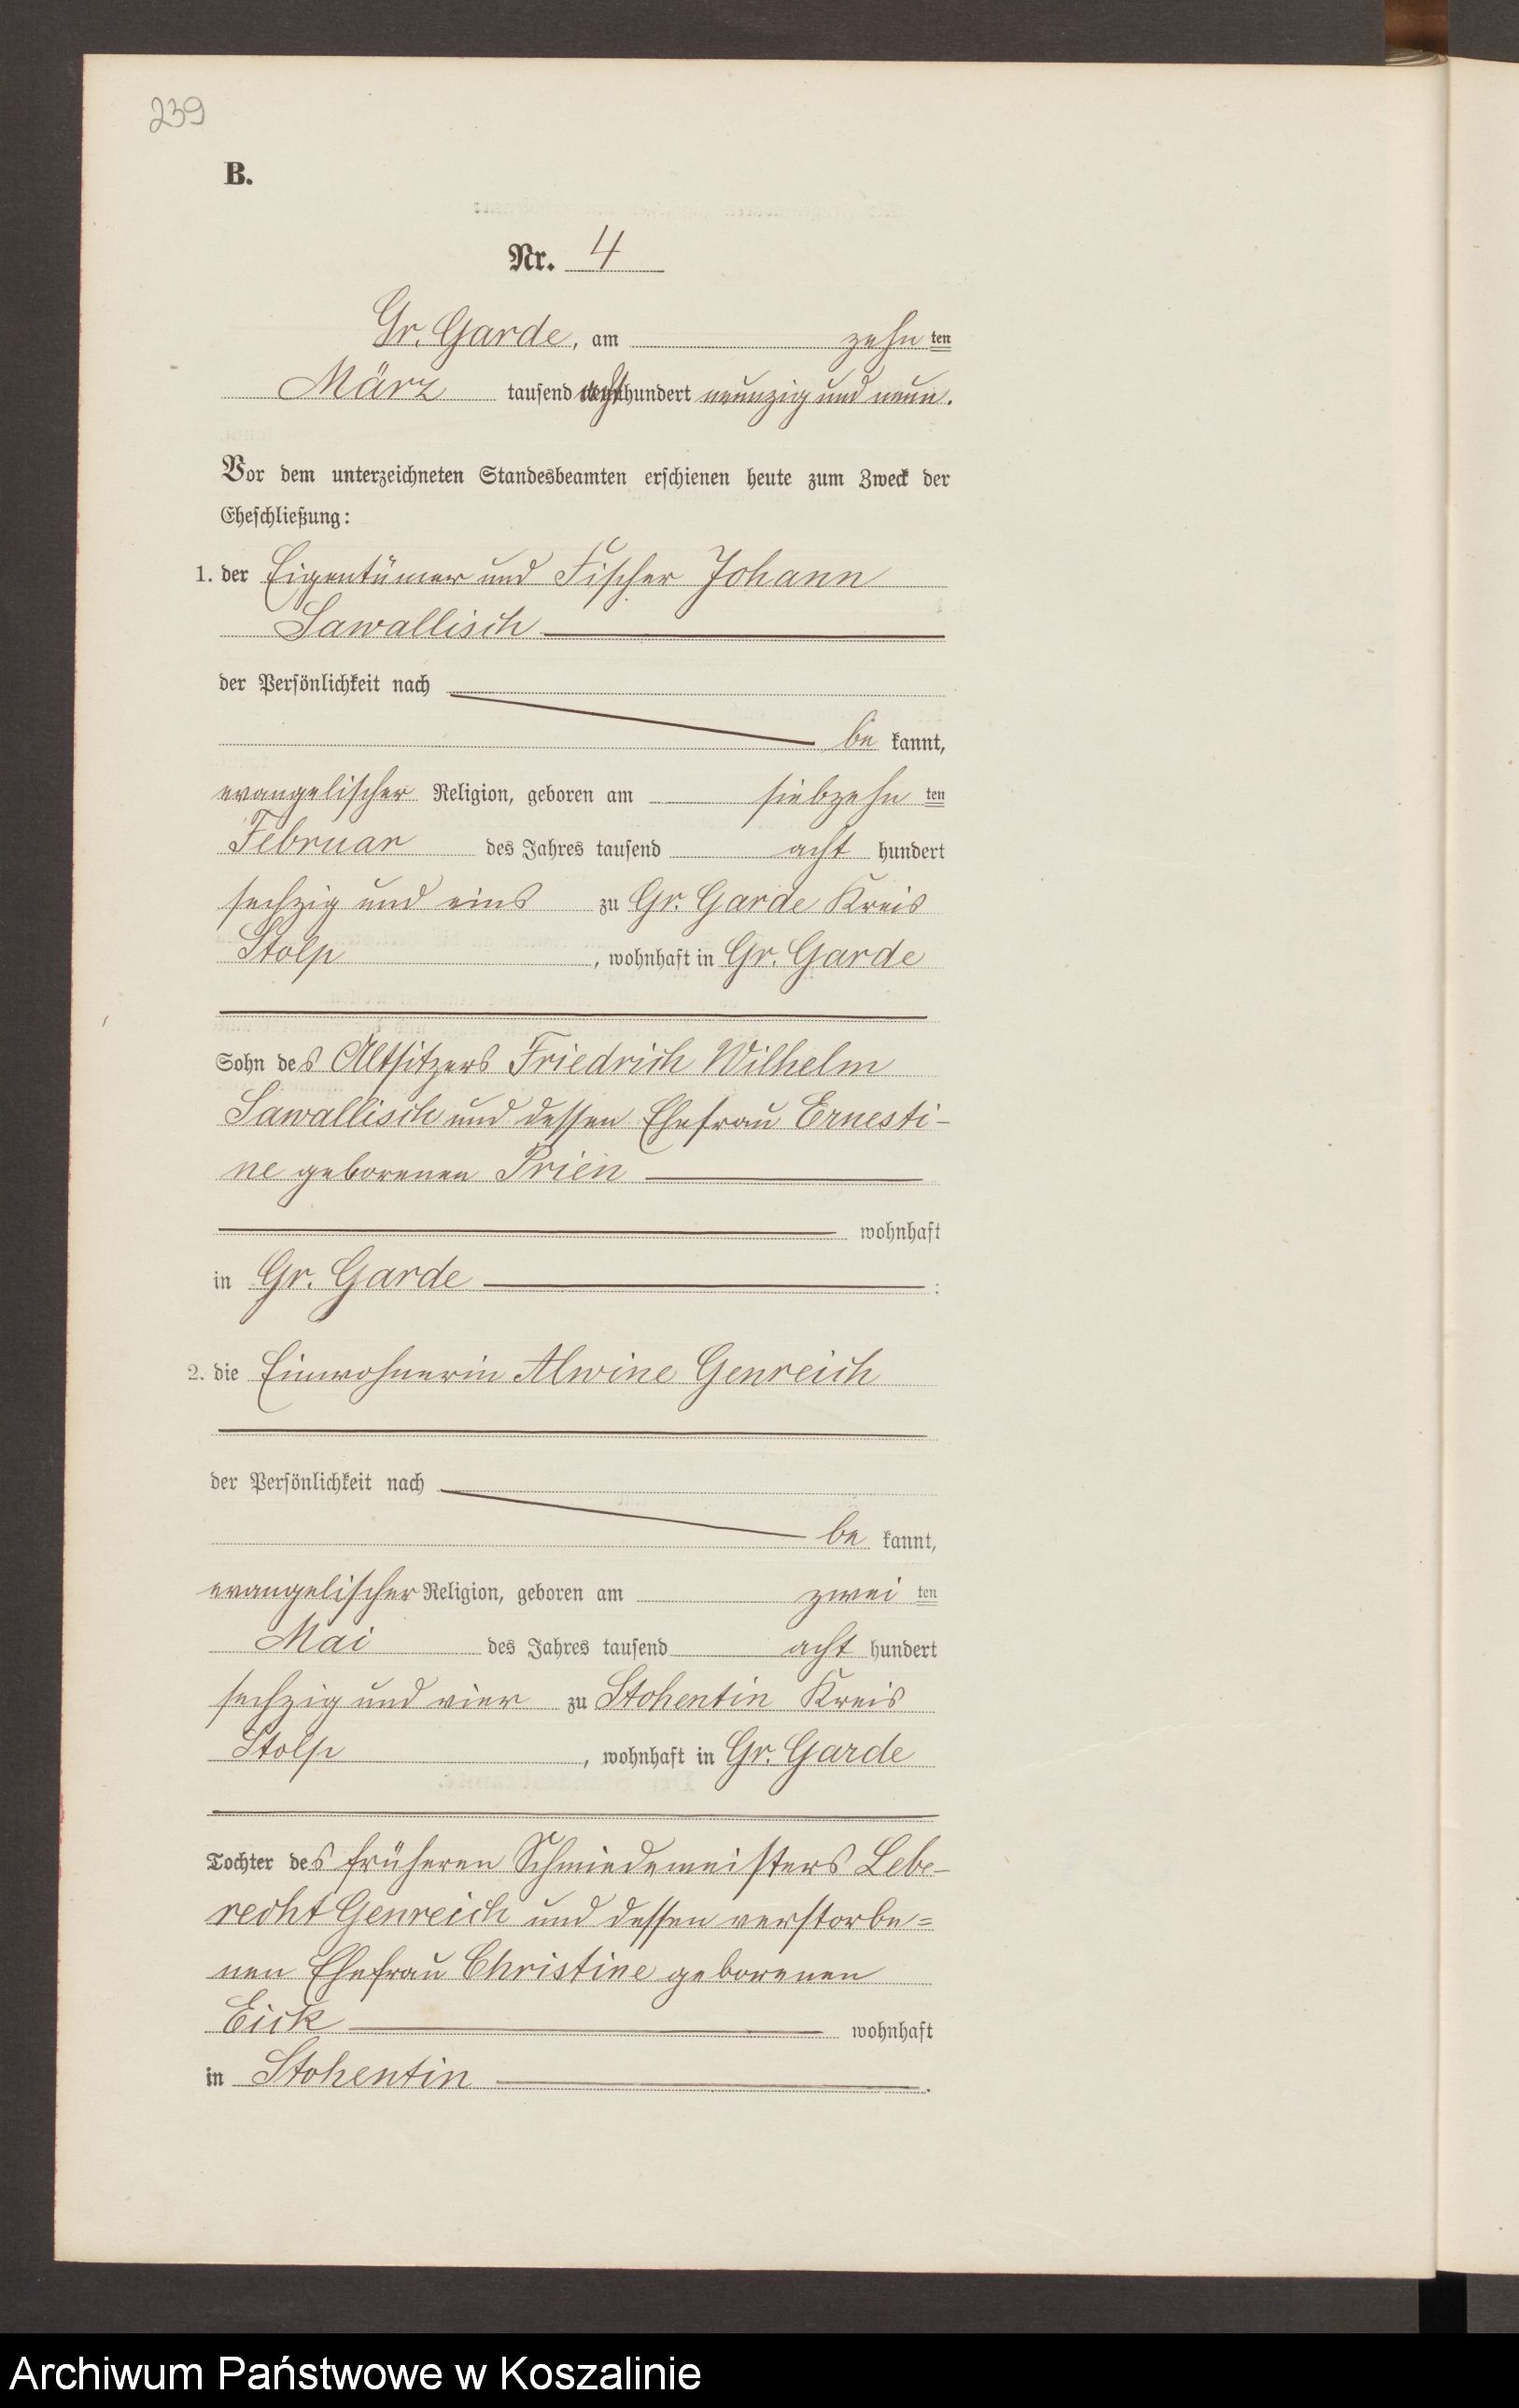 239
B.
Nr. 4
Gr. Garde, am zehn ten
März tausend acht hundert neunzig und neun.
Vor dem unterzeichneten Standesbeamten erschienen heute zum Zweck der
Eheschließung:
1. der Eigentümer und Fischer Johann
Sawallisch
der Persönlichkeit nach
be kannt,
evangelischer Religion, geboren am siebzehn ten
Februar des Jahres tausend acht hundert
sechzig und eins zu Gr. Garde Kreis
Stolp, wohnhaft in Gr. Garde
Sohn des Altsitzers Friedrich Wilhelm
Sawallisch und dessen Ehefrau Ernesti-
ne geborenen Prien
wohnhaft
in Gr. Garde :
2. die Einwohnerin Alwine Genreich
der Persönlichkeit nach
be kannt,
evangelischer Religion, geboren am zwei ten
Mai des Jahres tausend acht hundert
sechzig und vier zu Stohentin Kreis
Stolp, wohnhaft in Gr. Garde
Tochter des früheren Schmiedemeisters Lebe-
recht Genreich und dessen verstorbe=
nen Ehefrau Christine geborenen
Eick wohnhaft
in Stohentin.
Archiwum Państwowe w Koszalinie